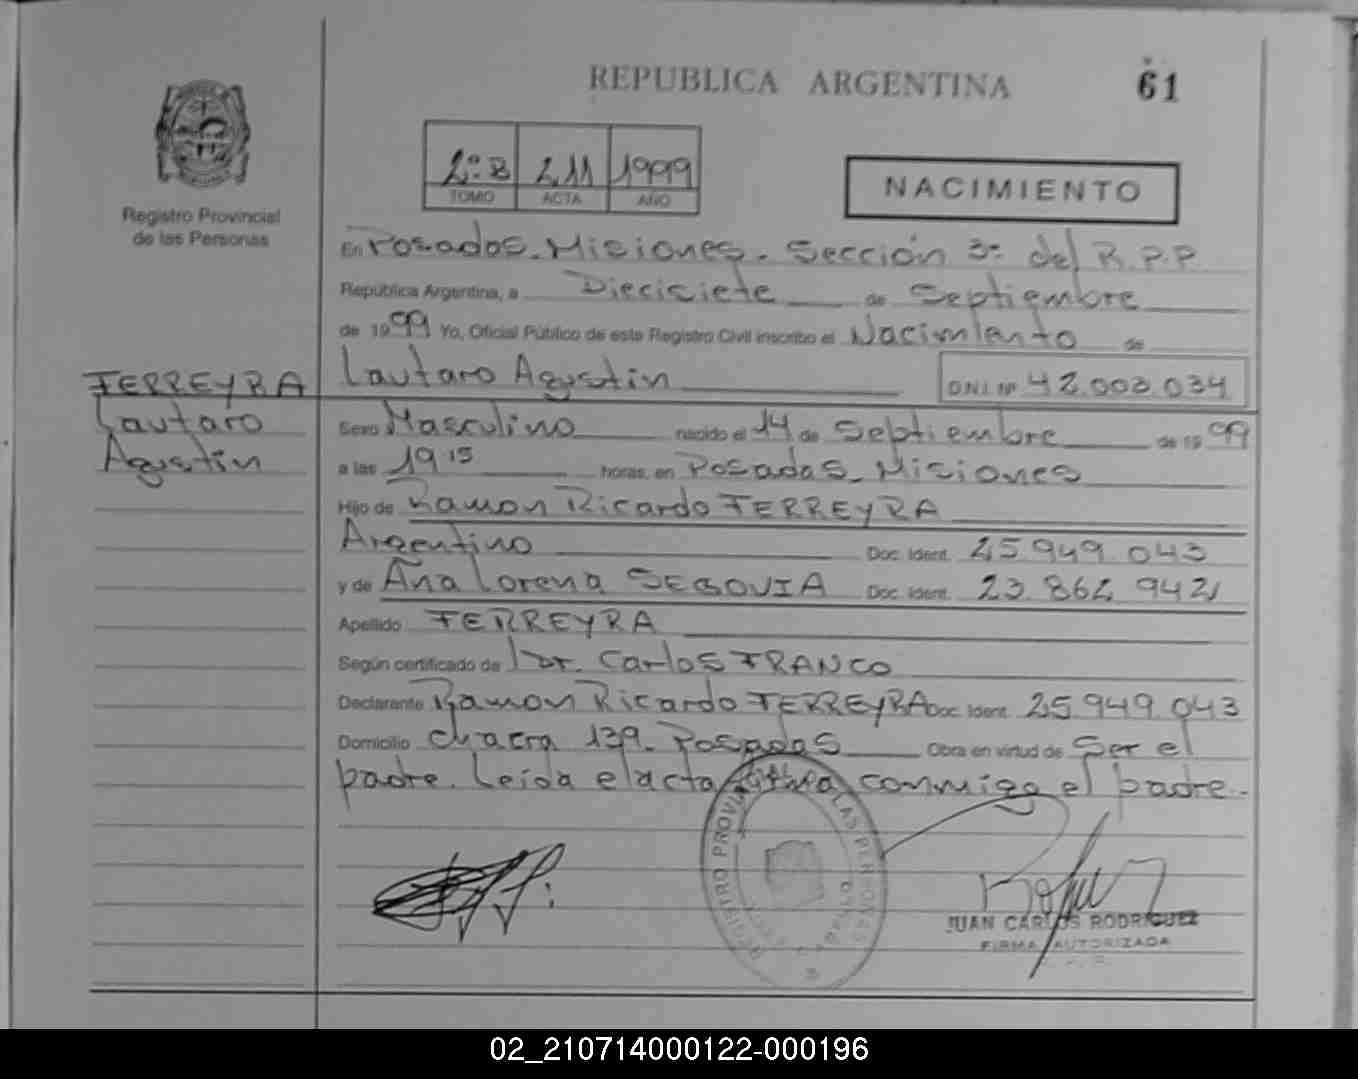 REPUBLICA ARGENTINA
61
Registro Provincial
de las Personas
2º B 211 1999
TOMO ACTA AÑO
NACIMIENTO
En Posadas - Misiones. Sección 3º del R.P.P.
República Argentina, a Diecisiete de Septiembre
de 1999 Yo, Oficial Público de este Registro Civil inscribo el Nacimiento de
Lautaro Agustin DNI Nº 42.003.034
FERREYRA
Lautaro
Agustin
Sexo Masculino nacido el 14 de Septiembre de 1999
a las 19 15 horas, en Posadas - Misiones
Hijo de Ramon Ricardo FERREYRA
Argentino Doc. Ident. 25.949.043
y de Ana Lorena SEGOVIA Doc. Ident. 23.862.942
Apellido FERREYRA
Según certificado de Dr. Carlos FRANCO
Declarante Ramon Ricardo FERREYRA Doc. Ident. 25.949.043
Domicilio Chacra 139 - Posadas Obra en virtud de Ser el
padre. Leída el acta firma conmigo el padre.
REGISTRO PROVI LAS PERSONAS
JUAN CARLOS RODRIGUEZ
FIRMA AUTORIZADA
02_210714000122-000196